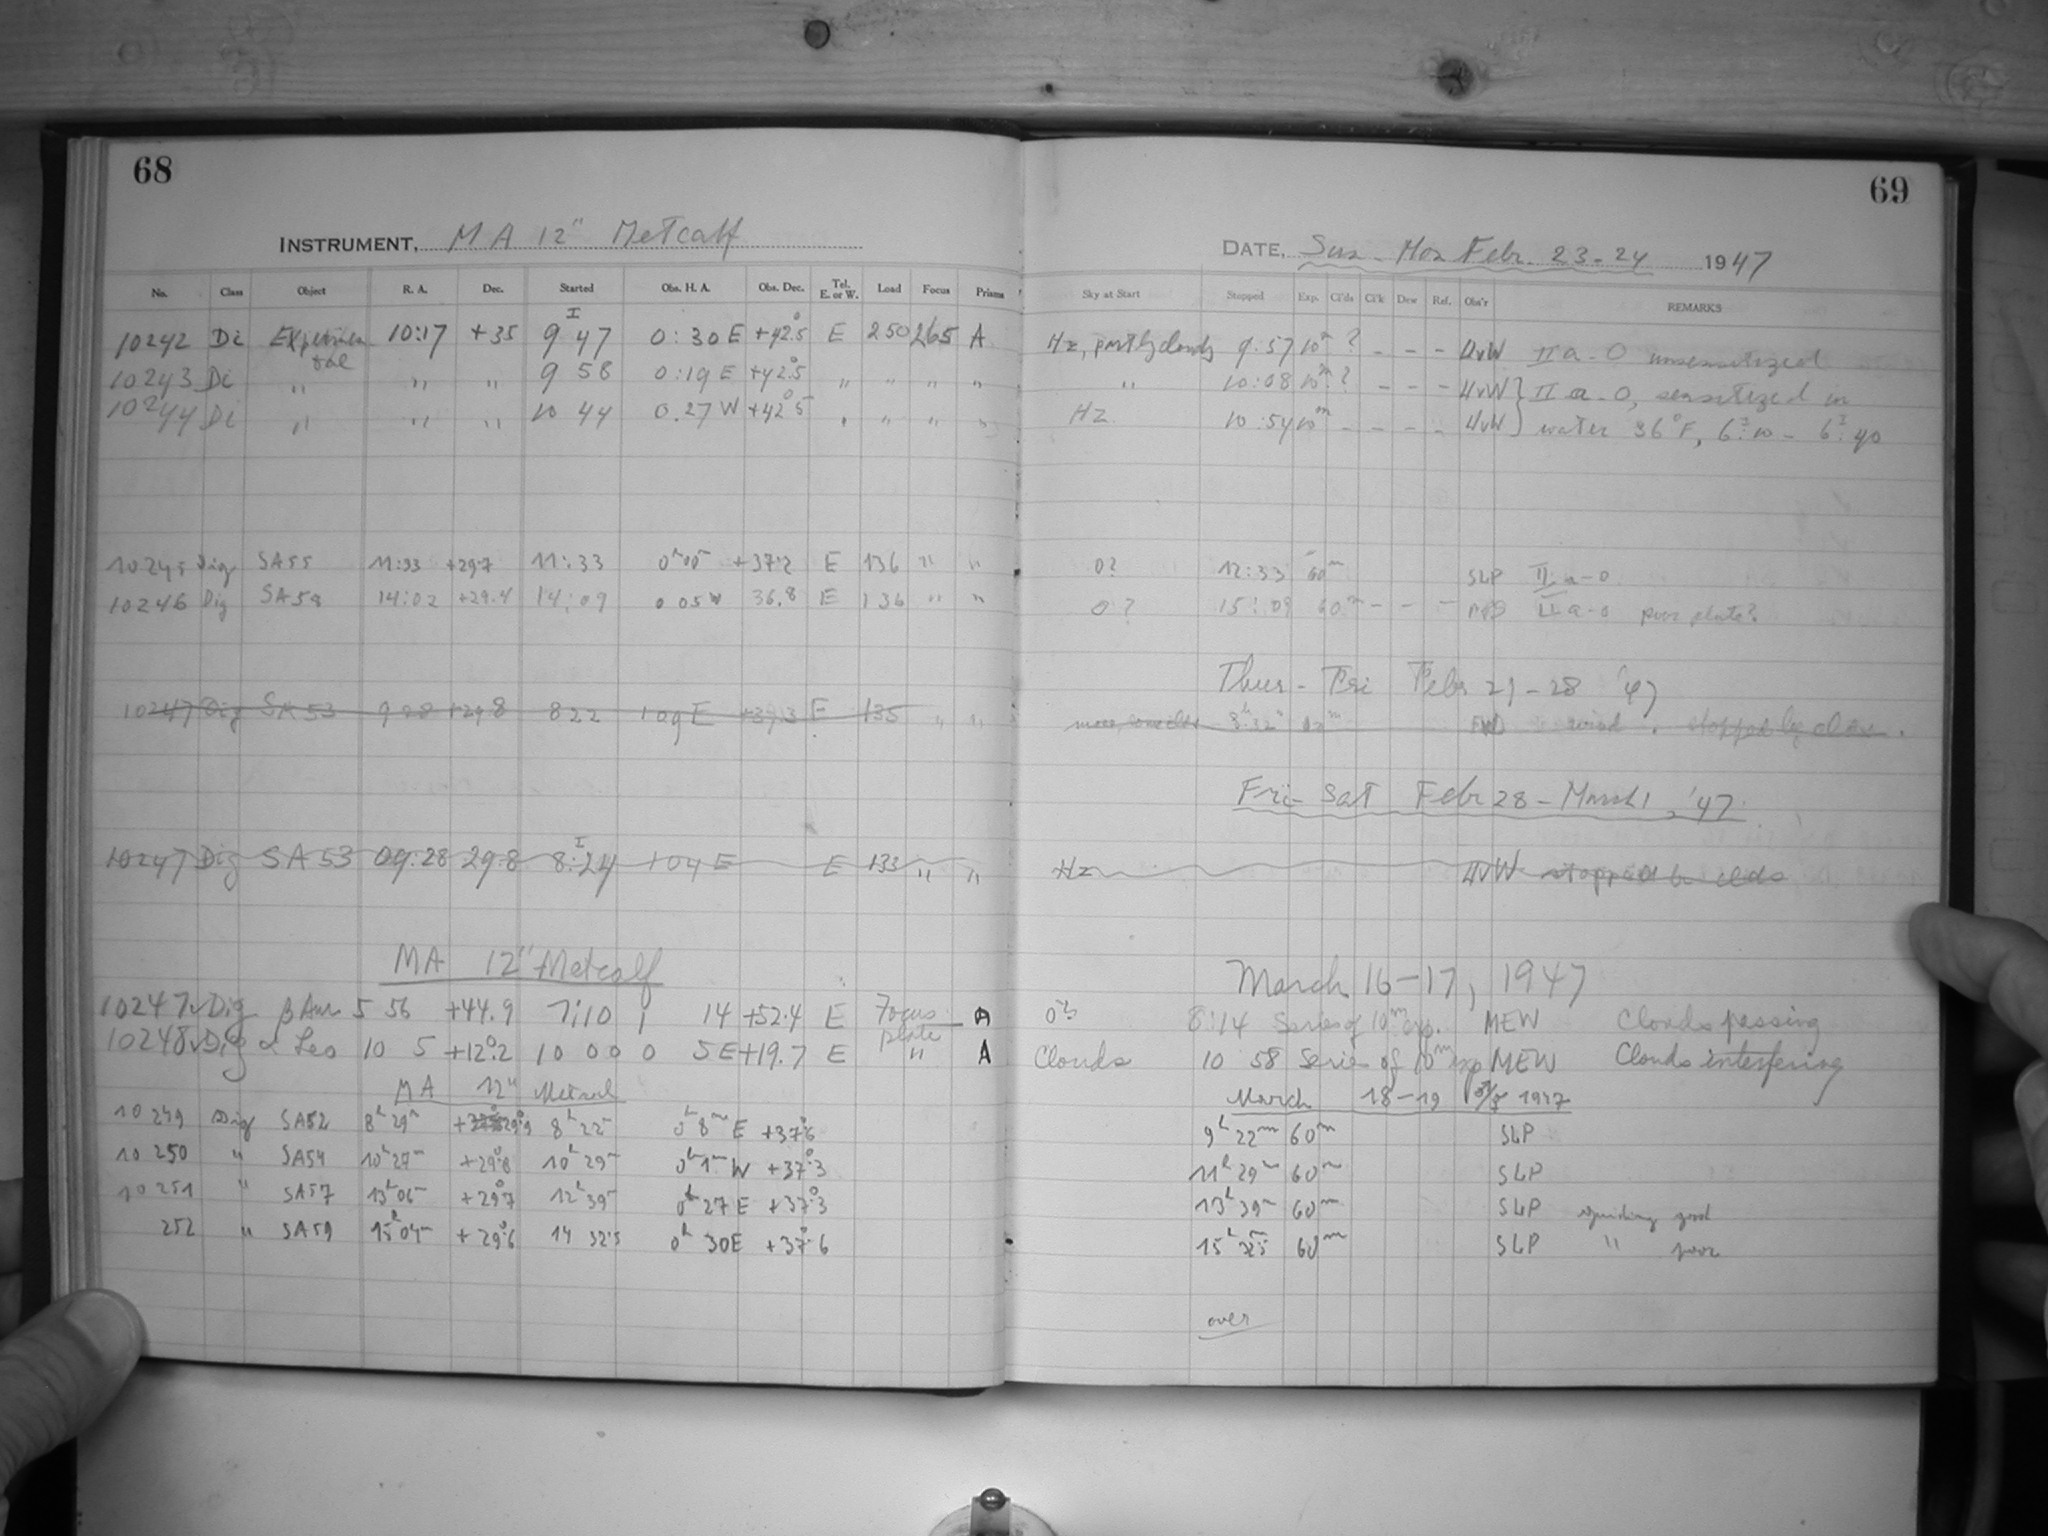 68
INSTRUMENT, MA 12" Metcalf
No. Class Object R. A. Dec. Started Obs. H. A. Obs. Dec. Tel. E. or W. Load Focus Prisms
10242 Di Experimental 10:17 +35 9 47 0:30 E +42°.5 E 250 265 A
10243 Di " " " 9 58 0:19 E +42°.5 " " " "
10244 Di " " " 10 44 0.27 W +42°.5 " " " "
10245 Dig SA55 11:33 +29.7 11:33 0h 00m +37.2 E 136 " "
10246 Dig SA58 14:02 +29.4 14:09 0 05 W 36.8 E 136 " "
10247 Dig SA 53 9 28 +29.8 8 22 1 09 E +37.3 E 135 " "
10247 Dig SA 53 09:28 29.8 8:24 1 04 E E 133 " "
MA 12" Metcalf
10247 Dig β Aur 5 56 +44.9 7:10 1 14 +52.4 E Focus plate A
10248 Dig α Leo 10 5 +12°.2 10 00 0 5 E +19.7 E " A
MA 12" Metcalf
10249 Dig SA52 8h 29m 29°.9 8h 22m 0h 8m E +37°.6
10250 " SA54 10h 27m +29°.8 10h 29m 0h 1m W +37°.3
10251 " SA57 13h 06m +29°.7 12h 39m 0h 27 E +37°.3
252 " SA59 15h 04m +29°.6 14 32.5 0h 30E +37°.6
69
DATE, Sun - Mon Febr. 23-24 1947
Sky at Start Stopped Exp. Cl'ds Cl'k Dew Ref. Obs'r REMARKS
Hz, partly cloudy 9:57 10m ? - - - HvW II a-O unsensitized
" 10:08 10m ? - - - HvW } II a-O, sensitized in
Hz 10:54 10m - - - - HvW } water 36°F, 6:10 - 6:40
0? 12:33 60m SLP II a-O
0? 15:09 60m - - - II a-O poor plate?
Thur - Fri Febr 27-28 '47
moon, some clds 8h 32m 10m wind. stopped by clds.
Fri - Sat Febr 28 - March 1, '47
Hz HvW stopped b clds
March 16-17, 1947
8:14 Series of 10m exp. MEW Clouds passing
Clouds 10 58 Series of 10m exp MEW Clouds interfering
March 18-19 1947
9h 22m 60m SLP
11h 29m 60m SLP
13h 39m 60m SLP guiding good
15h 60m SLP " poor
over